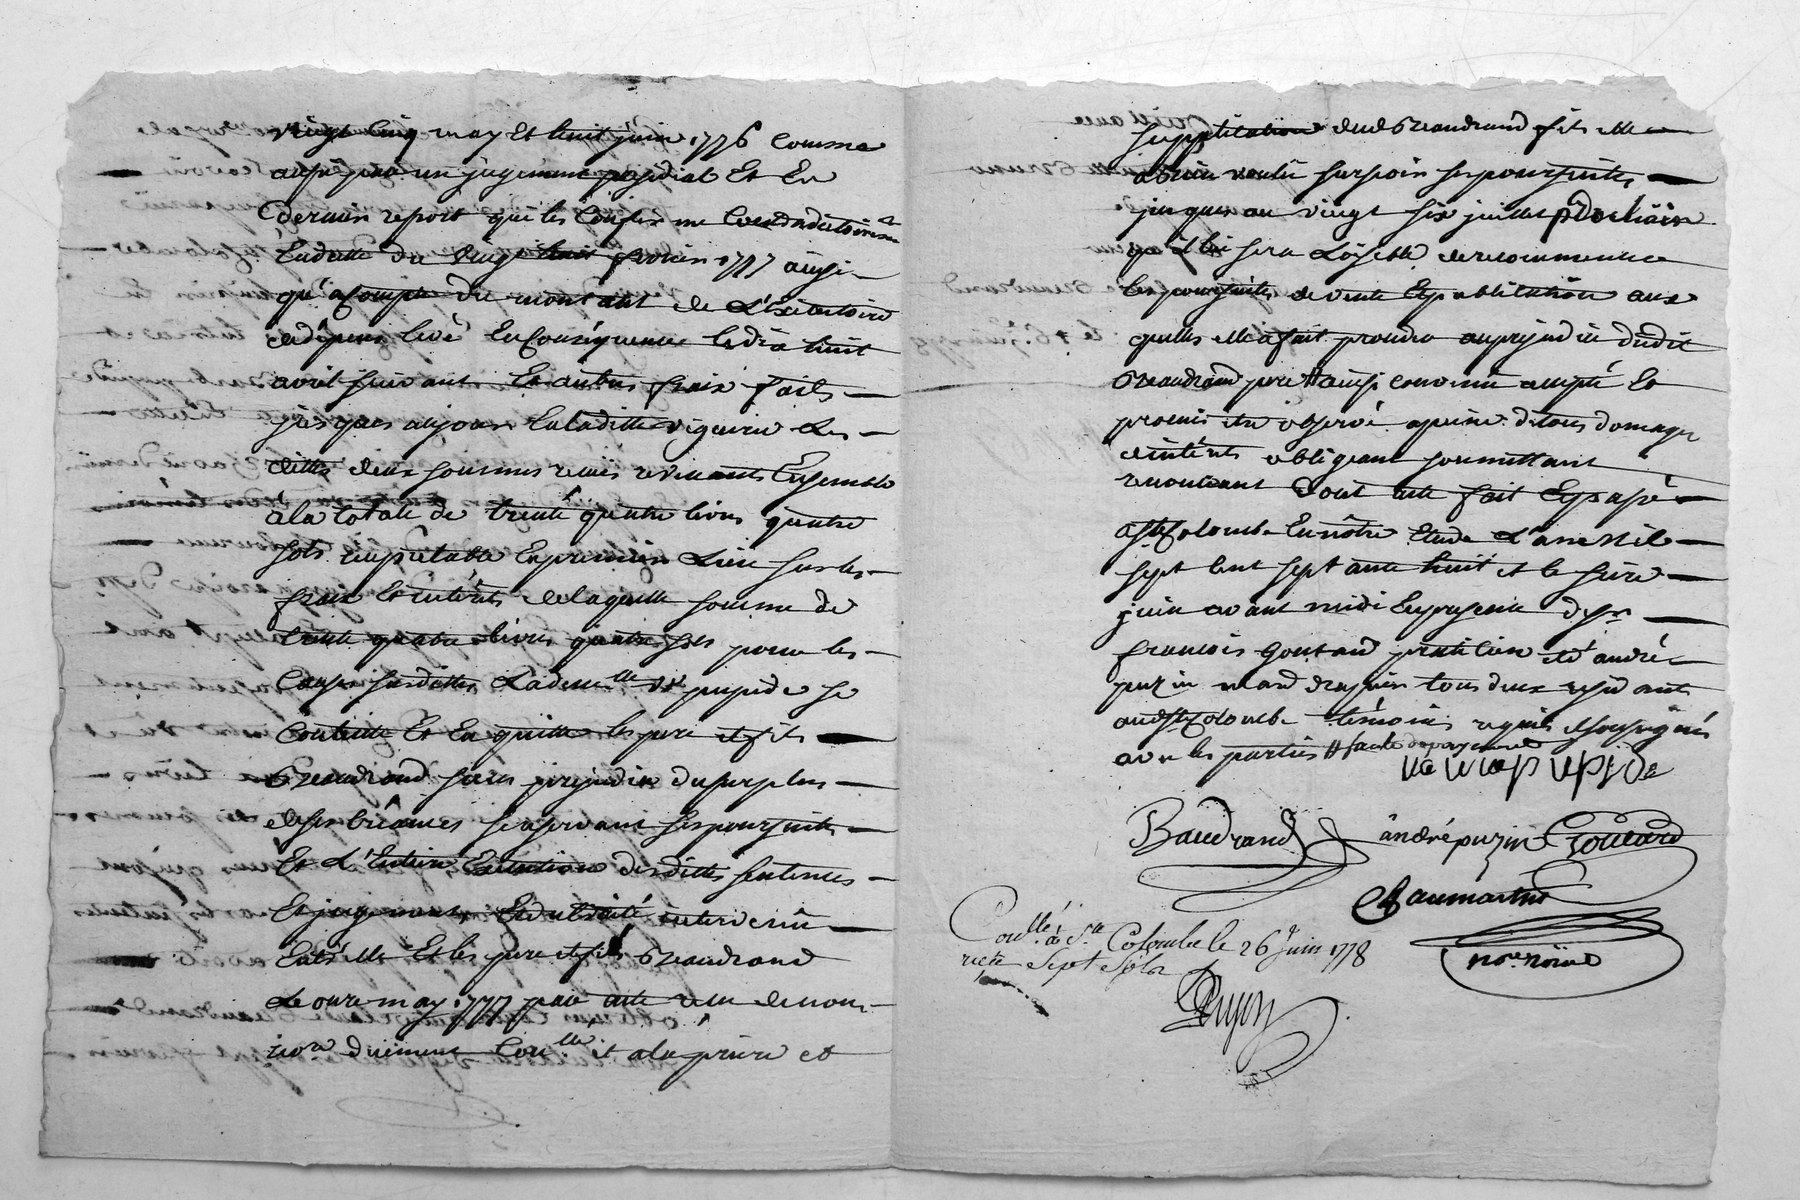 vingt cinq may et huit juin 1776 comme
aussy par un jugement présidial et en
dernier resort qui les confirme contradictoirem.t
en datte du vingt huit fevrier 1777 ainsi
qu'acompte du montant de l'exécutoire
de dépens levé en conséquence le dix huit
avril suivant et autres fraix faits
jusques aujour en laditte viguerie les
dittes deux sommes revenants ensemble
à la totale de trente quatre livres quatre
sols imputable en premier lieu sur les
fraix et intérêts de laquelle somme de
trente quatre livres quatre sols pour les
causes susdittes lade.lle se
contente et en quitte les pere et fils
Beaudrand sans prejudice du surplus
de ses créances se reservant ses poursuites
et l'entiere execution desdittes sentences
et jugement, et du traité intervenu
entr'elle et les pere et fils Beaudrand
le onze may 1777 par acte reçu de nous
no.re duement con.llé et a la priere et
supplication dud Beaudrand fils elle
a bien voulu surseoir ses poursuites
jusques au vingt six juillet prochain
qu'il lui sera loisible de recommencer
les poursuites de vente et publication aux
quelles elle a fait proceder au prejudice dudit
Beaudrand pere # ainsi convenu accepté et
promis etre observé a peine de tous domages
et intérêts obligeant soumettant
renonceant dont acte fait et passé
a S.te Colombe en nôtre etude l'an mil
sept cent septante huit et le seize
juin avant midi en presence de s.r
francois Goutard praticien et d'andré
puzin mard drapier tous deux residants
aud S.te Colombe témoins requis et soussignés
avec les parties # faute de payement
Baudrand andré puzin Goutard
no.re roial
Con.llé à S.te Colombe le 26 Juin 1778
recu Sept Sols